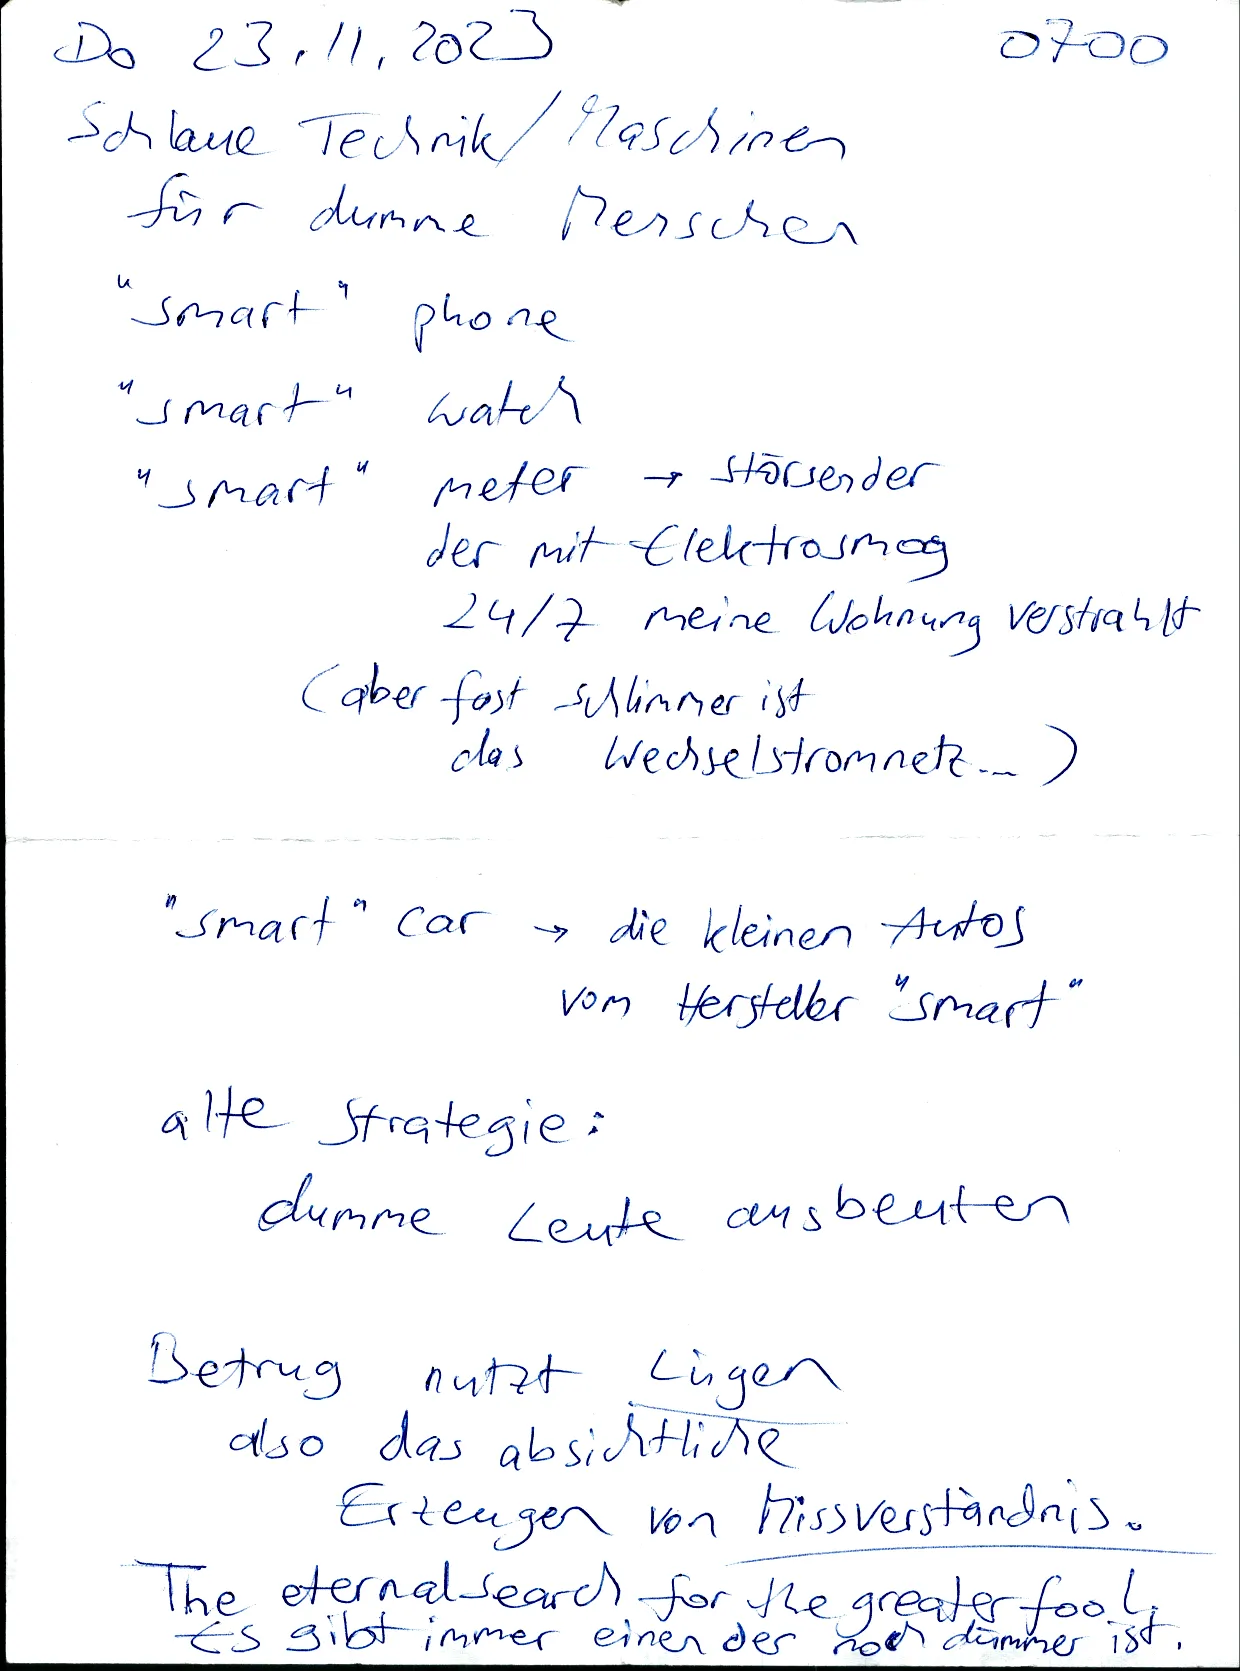 Do 23.11.2023 0700
Schlaue Technik/Maschinen
für dumme Menschen
"smart" phone
"smart" watch
"smart" meter → Störsender
der mit Elektrosmog
24/7 meine Wohnung verstrahlt
(aber fast schlimmer ist
das Wechselstromnetz...)
"smart" car → die kleinen Autos
vom Hersteller "smart"
alte Strategie:
dumme Leute ausbeuten
Betrug nutzt Lügen
also das absichtliche
Erzeugen von Missverständnis.
The eternal search for the greater fool.
Es gibt immer einen der noch dümmer ist.